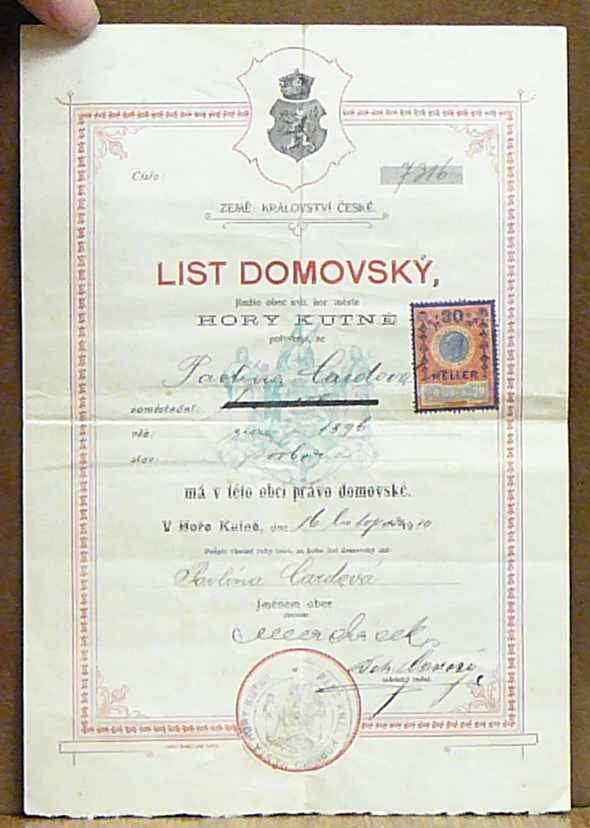 Číslo: 7316
ZEMĚ: KRÁLOVSTVÍ ČESKÉ.
LIST DOMOVSKÝ,
jímžto obec král. hor. města
HORY KUTNÉ
potvrzuje, že
Pavlína Cardová
zaměstnání:
věk: 1896
stav: svobodná
má v této obci právo domovské.
V Hoře Kutné, dne 16 listopadu 1910
Podpis vlastní ruky toho, za koho list domovský zní:
Pavlína Cardová
Jménem obce
30
HELLER